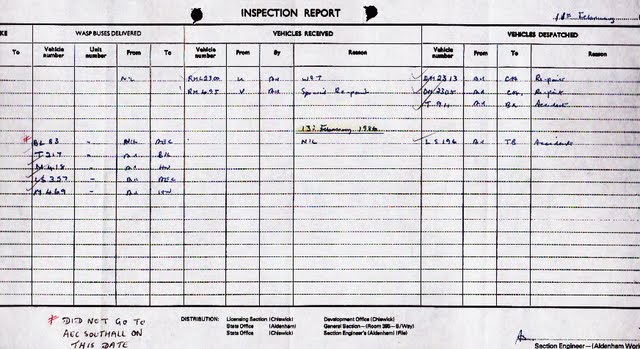 INSPECTION REPORT
13th February
KE WASP BUSES DELIVERED VEHICLES RECEIVED VEHICLES DESPATCHED
To Vehicle number Unit number From To Vehicle number From By Reason Vehicle number From To Reason
NIL RML2300 U AR W&T RM2313 AR Repair
RM495 V AR Special Request Repair
AR BR Accident
13th February 1986
* BL 83 " NIL AEC NIL LS196 AR TB Accident
T 217 " AR BK
M 418 " AR HW
LS 357 " AR AEC
M 469 AR HW
* DID NOT GO TO
AEC SOUTHALL ON
THIS DATE
DISTRIBUTION: Licensing Section (Chiswick) Development Office (Chiswick)
Stats Office (Aldenham) General Section—(Room 395—S/Way)
Stats Office (Chiswick) Section Engineer's (Aldenham) (File)
Section Engineer—(Aldenham Wor